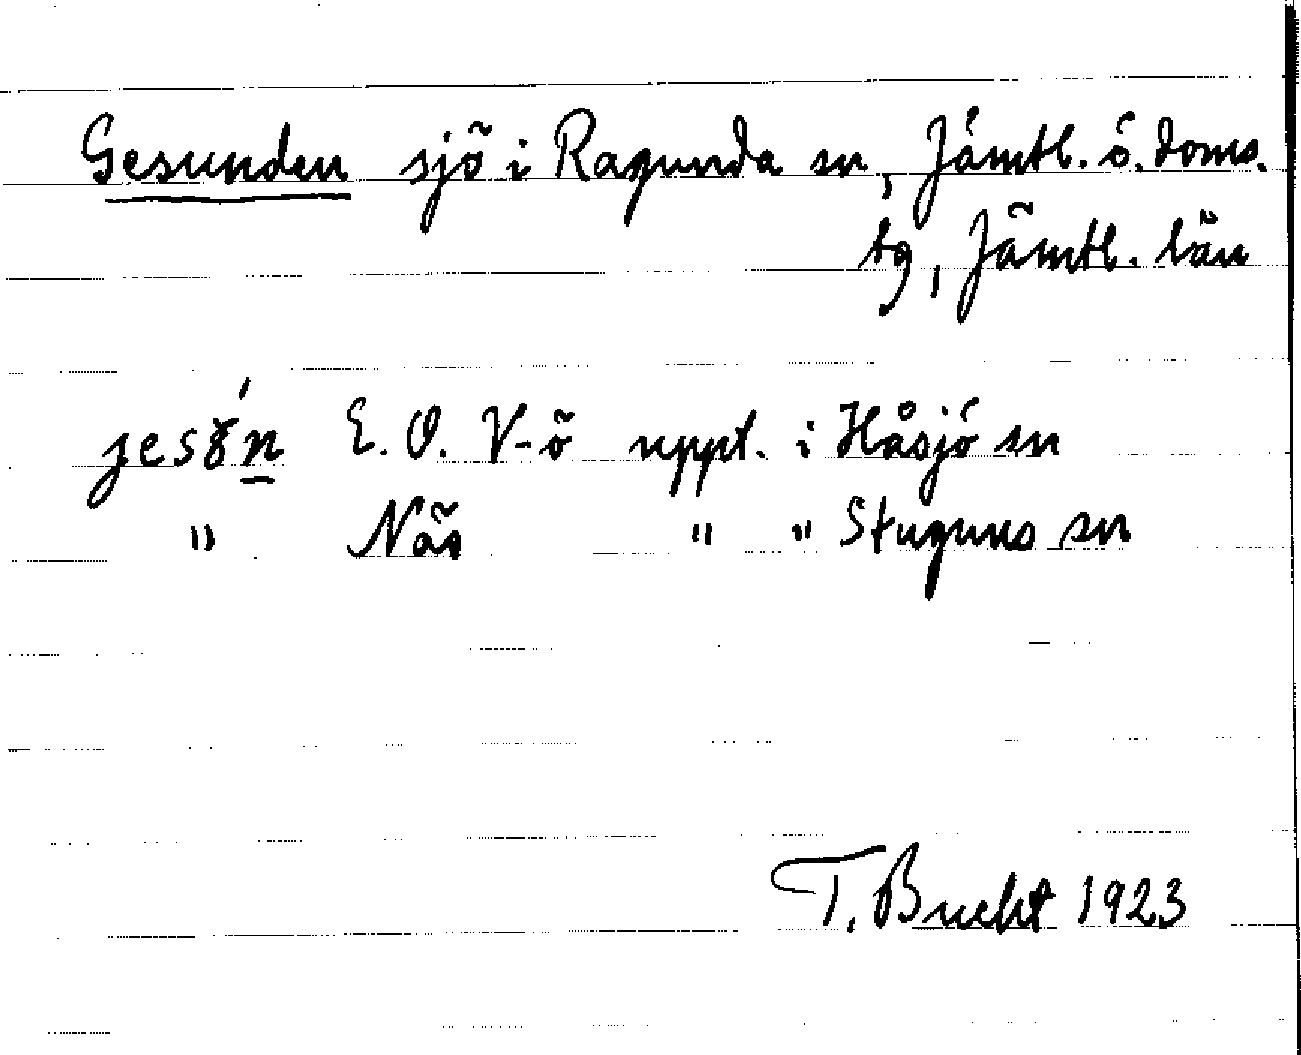 Gesunden sjö i Ragunda sn, Jämtl. ö. doms.
tg, Jämtl. län
E. O. V-ö uppt. i Håsjö sn
" Näs " " Stuguns sn
T. Bucht 1923